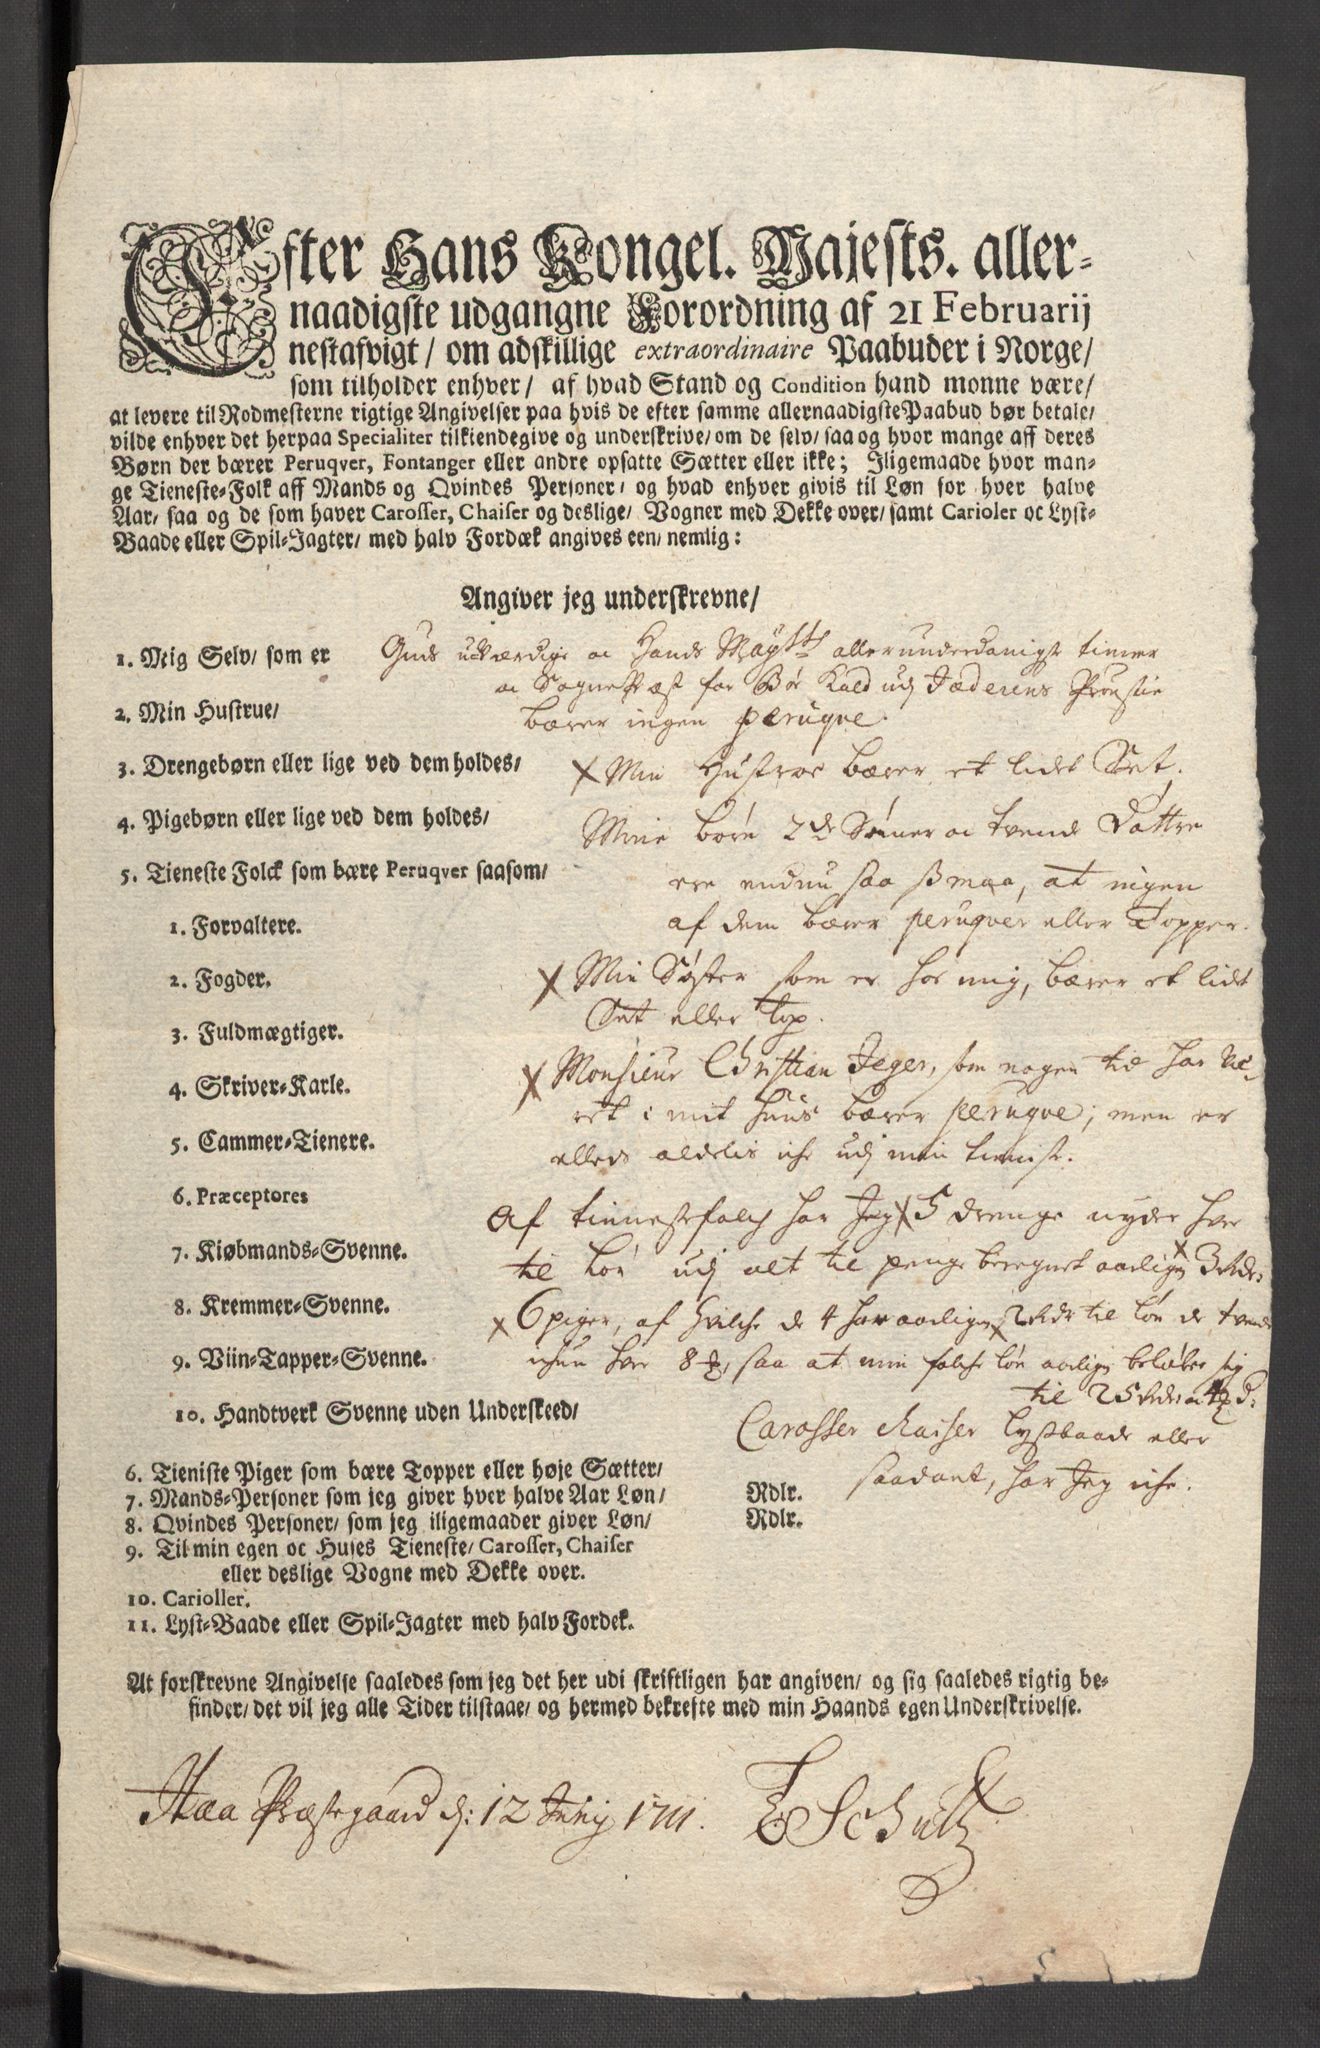 Efter Hans Kongel. Majests. aller-
naadigste udgangne Forordning af 21 Februarij
nestafvigt/ om adskillige extraordinaire Paabuder i Norge/
som tilholder enhver/ af hvad Stand og Condition hand monne være/
at levere til Rodmesterne rigtige Angivelser paa hvis de efter samme allernaadigste Paabud bør betale/
vilde enhver det herpaa Specialiter tilkiendegive og underskrive/ om de selv/ saa og hvor mange aff deres
Børn der bærer Peruqver, Fontanger eller andre opsatte Sætter eller ikke; Iligemaade hvor man-
ge Tieneste-Folk aff Mands og Qvindes Personer/ og hvad enhver givis til Løn for hver halve
Aar/ saa og de som haver Carosser, Chaiser og deslige/ Vogner med Dekke over/ samt Carioler oc Lyst-
Baade eller Spil-Jagter/ med halv Fordæk angives een/ nemlig:
Angiver jeg underskrevne/
1. Meig Selv/ som er
Guds uværdige oc Hands Maÿtts allerunderdanigste tiener
oc Sognepræst for Bór Kald udj Jæderens Proustie
bærer ingen peruqve.
2. Min Hustrue/
3. Drengebørn eller lige ved dem holdes/
X Min Hustroe bærer et lidet Set.
4. Pigebørn eller lige ved dem holdes/
Mine børn 2de Sónner oc tvende Dóttre
5. Tieneste Folck som bære Peruqver saasom/
ere endnu saa smaa, at ingen
af dem bærer peruqver eller Topper.
1. Forvaltere.
2. Fogder.
X Min Sóster som er hos mig, bærer et lidet
Set eller Top.
3. Fuldmægtiger.
4. Skriver-Karle.
X Monsieur Christian Jeger, som nogen tid har væ-
ret i mit huus bærer peruqve; men er
5. Cammer-Tienere.
ellers aldelis iche udj min tieniste.
6. Præceptores
Af tiennestefolch har Jeg X 5 drenge nyder hver
7. Kiøbmands-Svenne.
til lón udj alt til penge beregnet aarligen X 3 Rdr
8. Kremmer-Svenne.
X 6 piger, af hvilche de 4 har aarligen X 2 Rdr til lón de tvende
9. Viin-Tapper-Svenne.
ichun hver 8 ß, saa at min folche lón aarligen belóber sig
til 25 Rdr
10. Handtverk Svenne uden Underskeed/
Carosser chaiser lystbaade eller
saadant, har Jeg iche.
6. Tieniste Piger som bære Topper eller høje Sætter/
7. Mands-Personer som jeg giver hver halve Aar Løn/ Rdlr.
8. Qvindes Personer/ som jeg iligemaader giver Løn/ Rdlr.
9. Til min egen oc Huses Tieneste/ Carosser, Chaiser
eller deslige Vogne med Dekke over.
10. Carioller.
11. Lyst-Baade eller Spil-Jagter med halv Fordek.
At forskrevne Angivelse saaledes som jeg det her udi skriftligen har angiven/ og sig saaledes rigtig be-
finder/ det vil jeg alle Tider tilstaae/ og hermed bekrefte med min Haands egen Underskrivelse.
Haa Præstegaard d: 12 Junij 1711. E Schultz